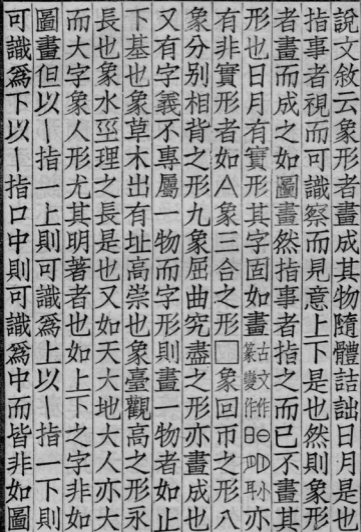 說文敘云象形者畫成其物隨體詰詘日月是也
指事者視而可識察而見意上下是也然則象形
者畫而成之如圖畫然指事者指之而已不畫其
形也日月有實形其字固如畫古文作小篆變作亦
有非實形者如亼象三合之形囗象回帀之形八
象分别相背之形九象屈曲究盡之形亦畫成也
又有字義不專屬一物而字形則畫一物者如止
下基也象草木出有址高崇也象臺觀高之形永
長也象水巠理之長是也又如天大地大人亦大
而大字象人形尤其明著者也如上下之字非如
圖畫但以丨指一上則可識爲上以丨指一下則
可識爲下以丨指口中則可識爲中而皆非如圖